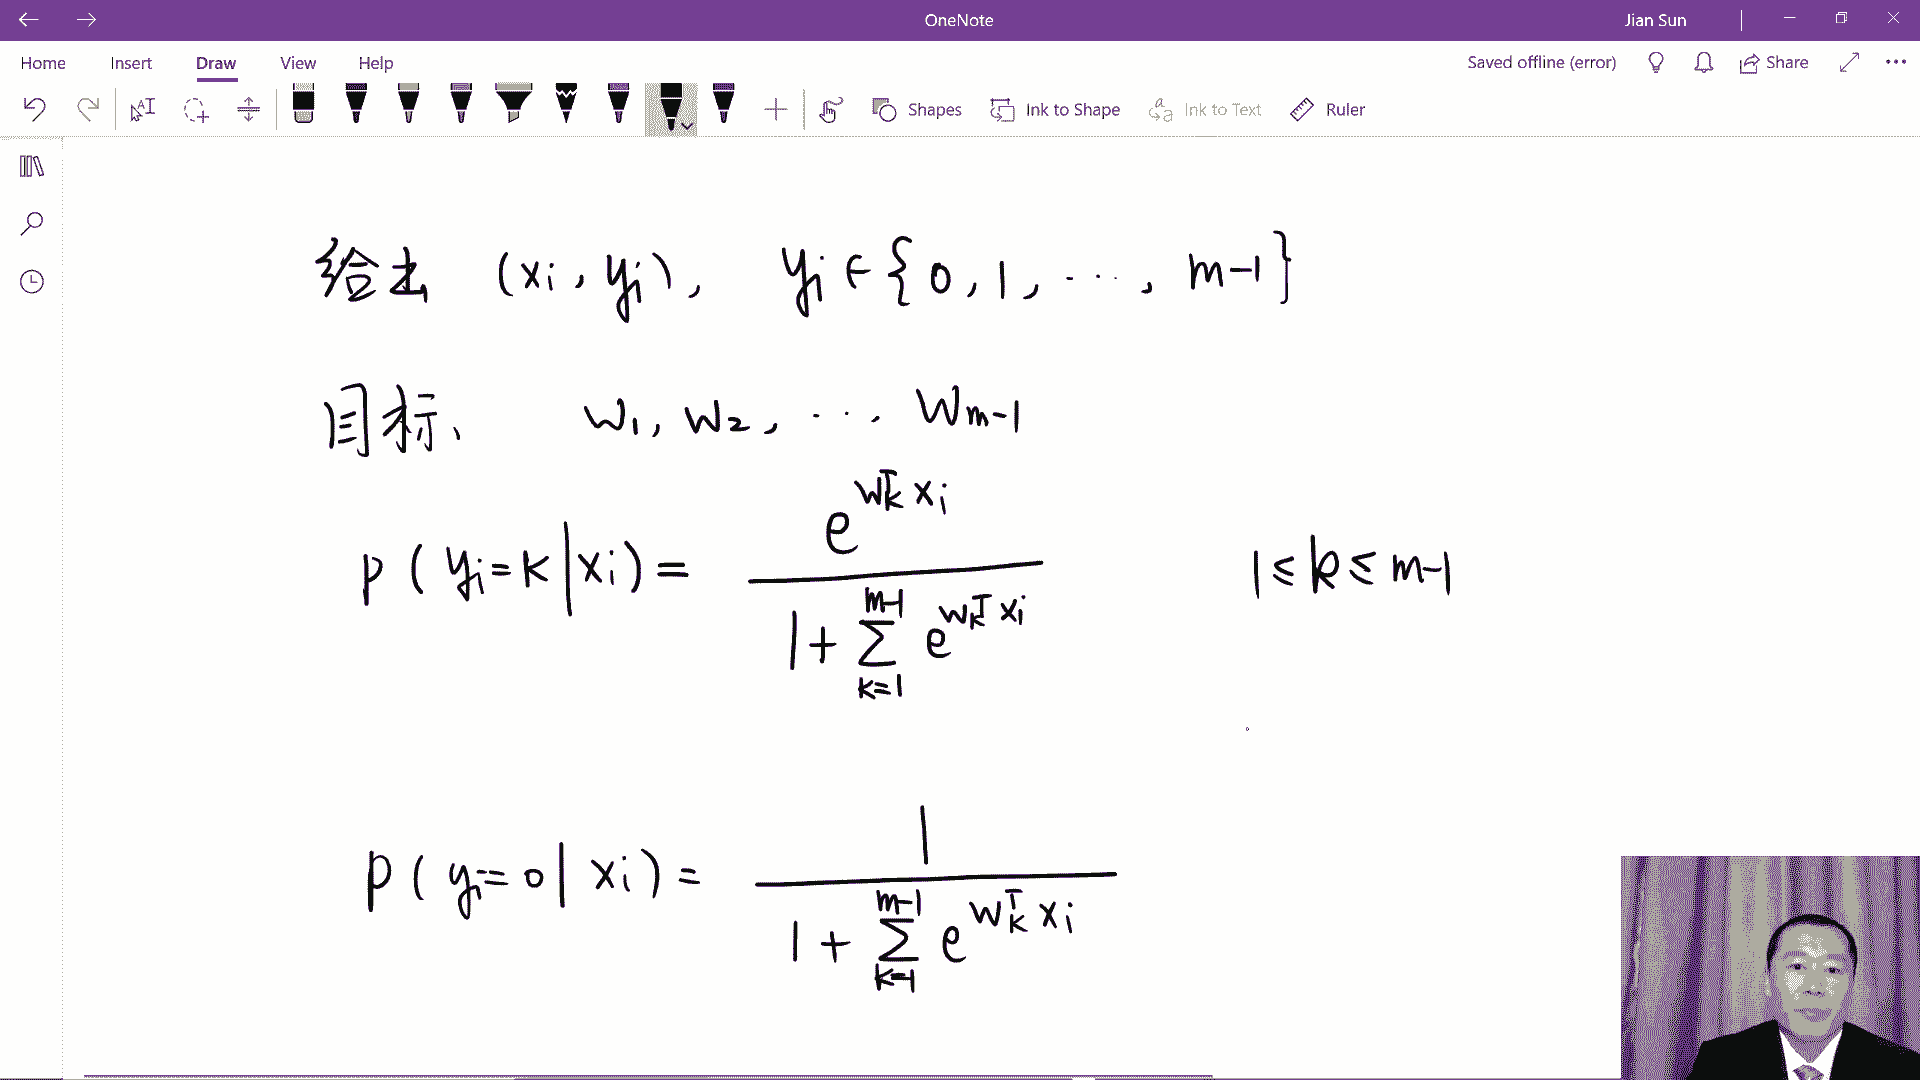 OneNote
Jian Sun
Home Insert Draw View Help
Saved offline (error) Share
Shapes Ink to Shape Ink to Text Ruler
给出 (xi, yi), yi ∈ {0, 1, ..., m-1}
目标、 w₁, w₂, ... Wm-1
p(yi=k|xi) = e^{w_k^T xi} / (1 + Σ_{k=1}^{m-1} e^{w_k^T xi}) 1 ≤ k ≤ m-1
p(yi=0|xi) = 1 / (1 + Σ_{k=1}^{m-1} e^{w_k^T xi})